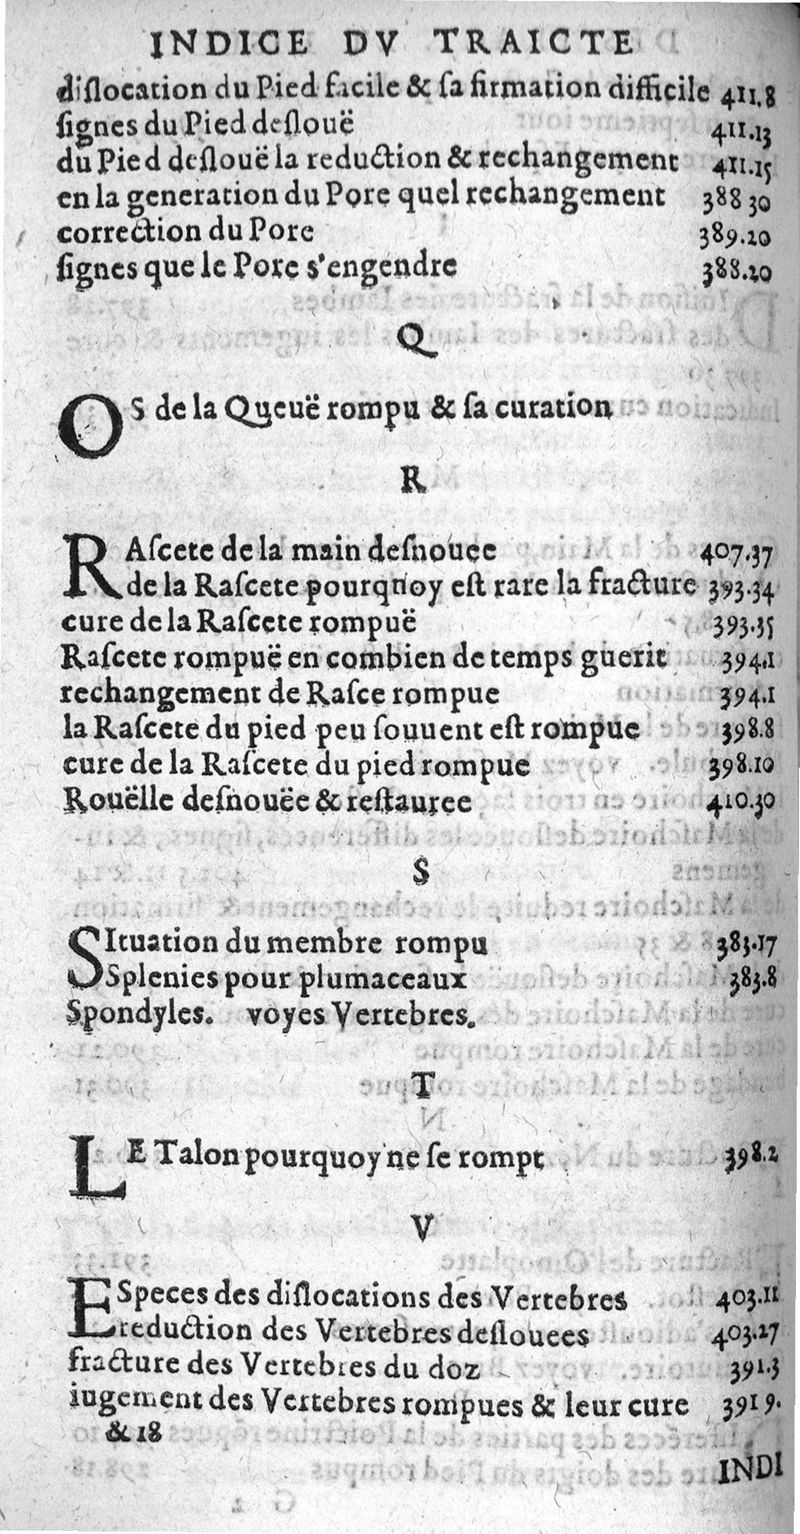 INDICE DV TRAICTE
diſlocation du Pied facile & ſa firmation difficile 411.8
ſignes du Pied deſlouë 411.13
du Pied deſlouë la reduction & rechangement 411.15
en la generation du Pore quel rechangement 388 30
correction du Pore 389.20
ſignes que le Pore s'engendre 388.20
Q
OS de la Queuë rompu & ſa curation
R
RAſcete de la main deſnouee 407.37
de la Raſcete pourquoy eſt rare la fracture 393.34
cure de la Raſcete rompuë 393.35
Raſcete rompuë en combien de temps guerit 394.1
rechangement de Raſce rompue 394.1
la Raſcete du pied peu ſouuent eſt rompue 398.8
cure de la Raſcete du pied rompue 398.10
Rouëlle deſnouëe & reſtauree 410.30
S
SItuation du membre rompu 383.17
Splenies pour plumaceaux 383.8
Spondyles. voyes Vertebres.
T
LE Talon pourquoy ne ſe rompt 398.2
V
ESpeces des diſlocations des Vertebres 403.11
reduction des Vertebres deſlouees 403.27
fracture des Vertebres du doz 391.3
iugement des Vertebres rompues & leur cure 3919.
& 18
INDI